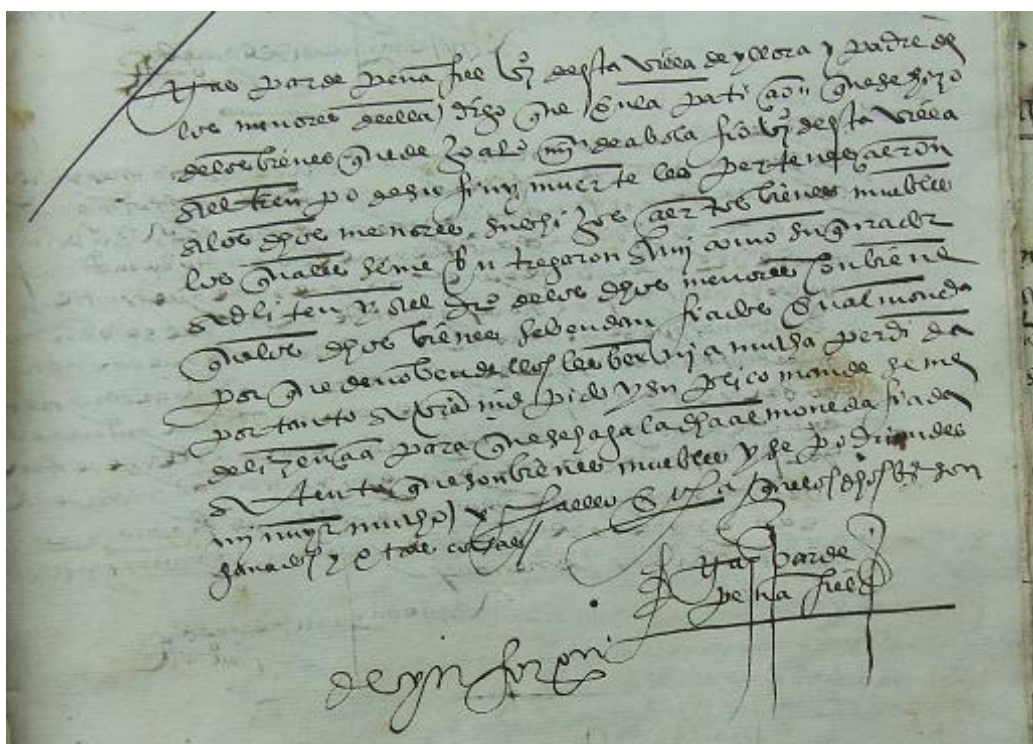 Gaspar de peñafiel vº desta villa de yllora y padre de
los menores della digo que en la partiçion que se hizo
de los bienes que dexo alº min de abola fio vº desta villa
al tienpo de su fin y muerte les perteneçieron
a los dhos menores sus hijos çiertos bienes muebles
los quales se me entregaron a mi como su curador
ad liten y al pro de los dhos menores conbiene
que los dhos bienes se bendan fiados en almoneda
por que de no bendellos les bernia mucha perdida
por tanto a vra md pido y suplico mande se me
de liçençia para que se haga la dha almoneda fiada
atento que son bienes muebles y se podrian des
minuyr mucho y que los dhos bs son
ganados y otras cosas
gaspar de
peñafiel
de ynforon